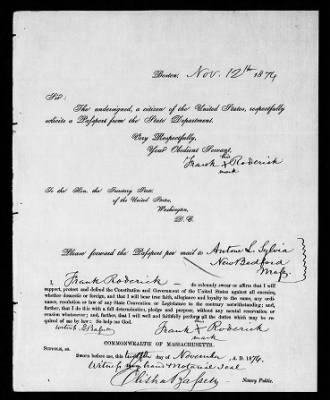 Boston, Nov. 12th 1874
Sir:
The undersigned, a citizen of the United States, respectfully
solicits a Passport from the State Department.
Very Respectfully,
Your Obedient Servant,
his
Frank X Roderick
mark
To the Hon. the Secretary State
of the United States,
Washington,
D. C.
Please forward the Passport per mail to Antone L. Sylvia
New Bedford
Mass.
I, Frank Roderick do solemnly swear or affirm that I will
support, protect and defend the Constitution and Government of the United States against all enemies,
whether domestic or foreign, and that I will bear true faith, allegiance and loyalty to the same, any ordi-
nance, resolution or law of any State Convention or Legislature to the contrary notwithstanding; and,
further, that I do this with a full determination, pledge and purpose, without any mental reservation or
evasion whatsoever; and further, that I will well and faithfully perform all the duties which may be re-
quired of me by law: So help me God.
witness his
Frank X Roderick
mark
COMMONWEALTH OF MASSACHUSETTS.
Suffolk, ss.
Sworn before me, this twelfth day of November, A. D. 1874.
Witness my hand & Notarial Seal
Elisha Bassett
Notary Public.